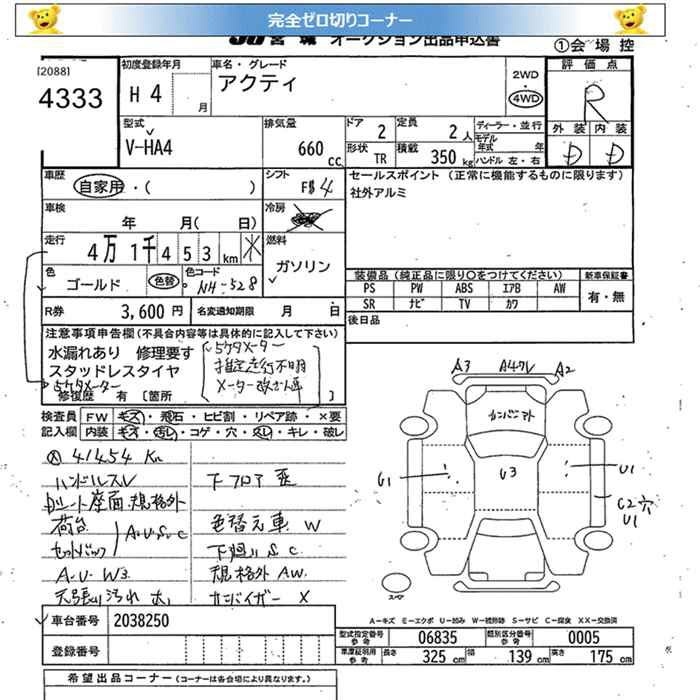 完全ゼロ切りコーナー
JU 宮城 オークション出品申込書
①会場控
[2088]
4333
初度登録年月
H 4 月
車名・グレード
アクティ
2WD
4WD
評価点
R
型式
V-HA4
排気量
660 cc
ドア 2
定員 2 人
形状 TR
積載 350 kg
ディーラー・並行
モデル年式 年
ハンドル 左・右
外装 内装
D D
車歴
自家用・( )
シフト
F5 4
セールスポイント (正常に機能するものに限ります)
社外アルミ
車検
年 月( 日)
冷房
走行
4万 1千 4 5 3 km
燃料
ガソリン
色
ゴールド
色替
色コード
NH-528
装備品(純正品に限り○をつけてください)
新車保証書
PS PW ABS エアB AW
SR ナビ TV カワ
有・無
R券 3,600 円
名変通知期限 月 日
後日品
注意事項申告欄(不具合内容等は具体的に記入して下さい)
水漏れあり 修理要す
スタッドレスタイヤ
5ケタメーター
修復歴 有 [箇所 ]
5ケタメーター
推定走行不明
メーター改ざん車
検査員記入欄
FW キズ・飛石・ヒビ割・リペア跡・×要
内装 キズ・汚レ・コゲ・穴・スレ・キレ・破レ
41454 Km
ハンドルスレ
シート座面 規格外
荷台
セットバック
A.U.S.C
A.U.W3
天張り汚れ 大
下フロア 歪
色替え車 W
下廻り S.C
規格外 AW
サンバイザー X
A3
A4ワレ
A2
カンバンアト
U1
U3
U1
C2穴
U1
スペア
A－キズ E－エクボ U－凹み W－補修跡 S－サビ C－腐食 XX－交換済
車台番号
2038250
登録番号
型式指定番号 参考
06835
類別区分番号 参考
0005
車庫証明用 参考
長さ 325 cm
幅 139 cm
高さ 175 cm
希望出品コーナー (コーナーは各会場により異なります。)